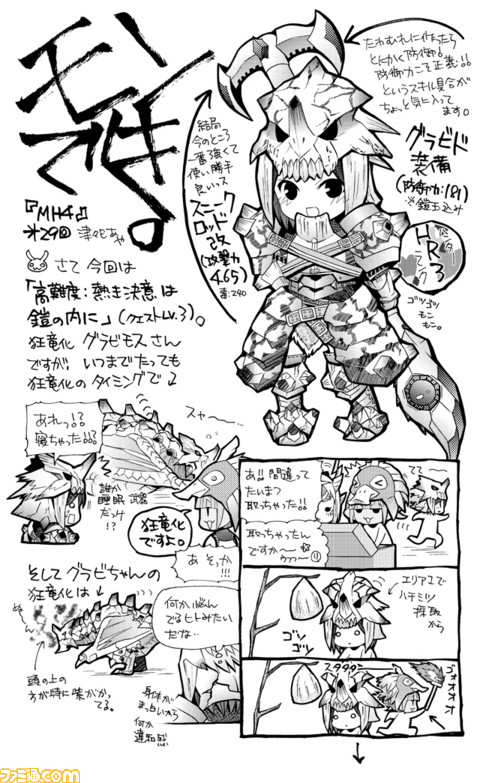 モンでき。
『MH4G』
第29回 津地あや
さて 今回は
「高難度:熱き決意は
鎧の内に」(クエストLv.3)。
狂竜化 グラビモス さん
ですが いつまでたっても
狂竜化のタイミングで
たわむれに作ったら
とにかく防御!
防御力こそ正義!!
というスキル具合が
ちょっと気に入って
ます。
グラビド
装備
(防御力:181)
※鎧玉込み
結局
今のところ
一番強くて
使い勝手
良いッス
スニーク
ロッド
改
(攻撃力
465)
HR3
ゴツゴツ
もこ
もこ。
あれっ!?
寝ちゃった!!?
スヤ〜〜
誰か
睡眠武器
だっけ
!?
狂竜化
ですよ。
あ そっか
!!!
そして グラビちゃんの
狂竜化は
何か悩ん
でるヒトみたい
だな…
頭の上の
方が特に紫がかっ
てる。
身体が
まっ白いから
何か
違和感
あ!! 間違って
たいまつ
取っちゃった!!
取っちゃったん
ですか〜
エリア2で
ハチミツ
採取
から
ゴソ
ゴソ
スタタタ
ゴオオオオ
ファミ通.com